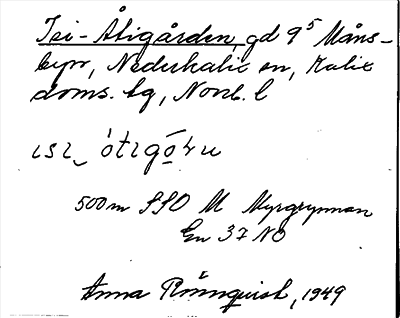 Isi-Åtigården, gd 9⁵ Måns-
byn, Nederkalix sn, Kalix
doms. tg, Norrb. l
ısı‿ ótıgó̱ṙu
500m SSO M Myrgrynnan
En 37 NO
Anna Rönnquist, 1949